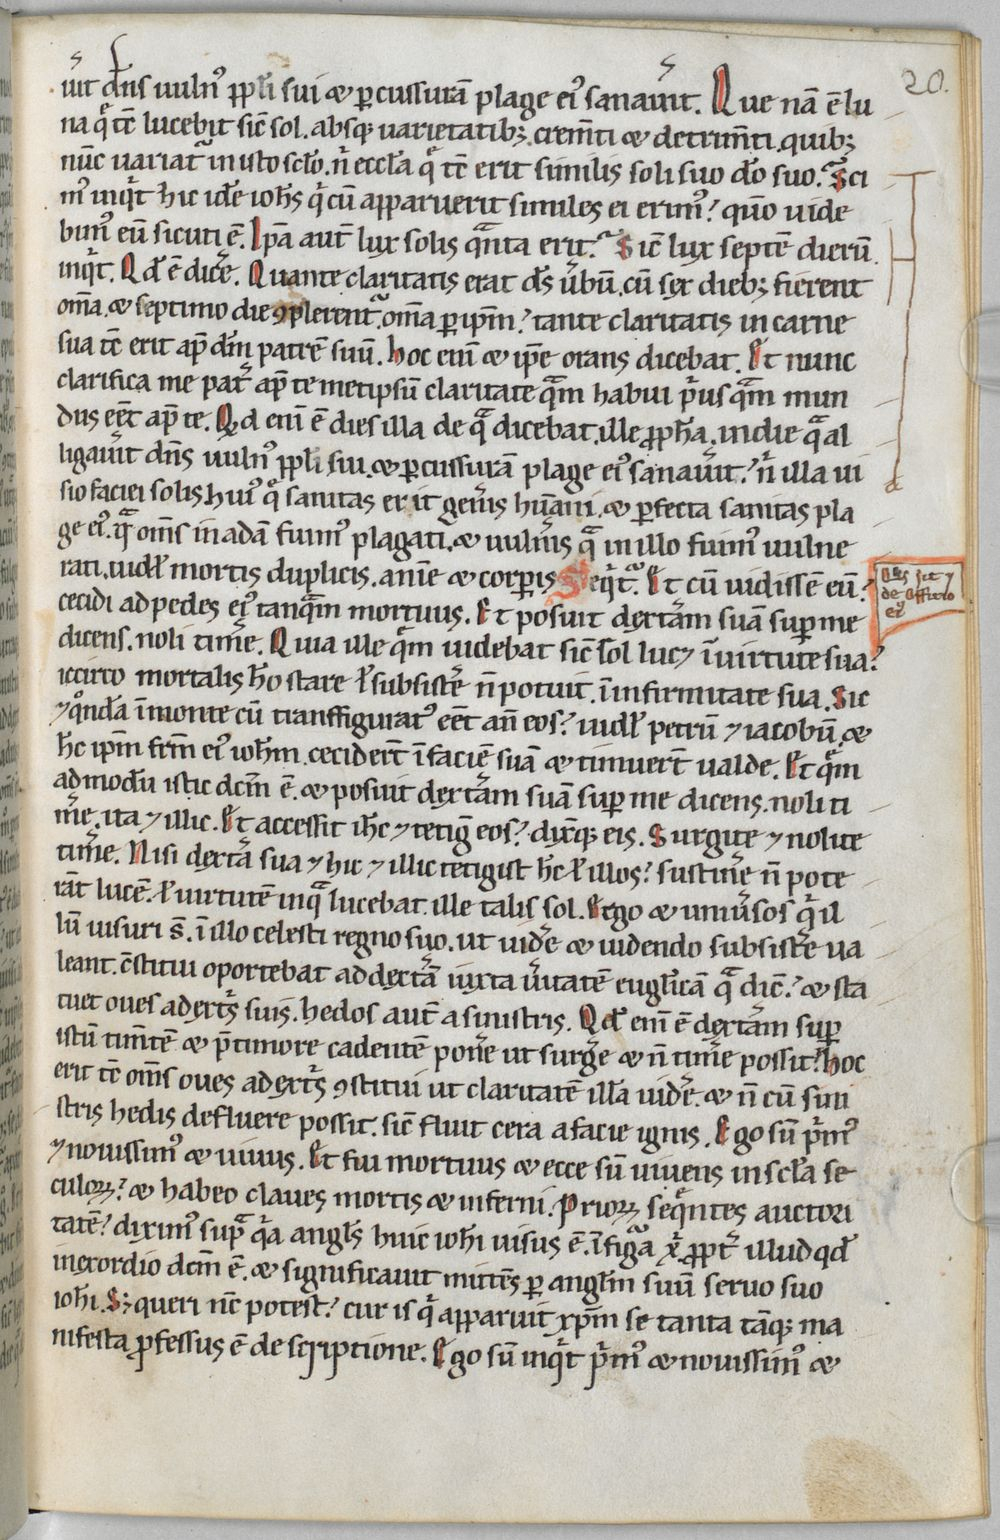 20.
uit dn̄s uuln᷒ ppl̄i sui ⁊ ꝑcussurā plage ei᷒ sanauit. Que nā ē lu
na q̄ tc̄ lucebit sic̄ sol. absq; uarietatib; crem̄ti ⁊ detrim̄ti, quib;
nūc uariat᷑ in isto sc̄lo. n̄ eccl̄a q̄ tc̄ erit similis soli suo dō suo. Sci
m᷒ inq̄t hic idē ioh̄s q̄ cū apparuerit similes ei erim᷒? quō uide
bim᷒ eū sicuti ē. Ipā aut̄ lux solis q̄nta erit? Sic̄ lux septē dierū
inq̄t. Qd̄ ē dic̄e. Quante claritatis erat d̄s ūbū, cū sex dieb; fierent
om̄a. ⁊ septimo die ꝯplerent᷑ om̄a ꝑ ip̄m? tante claritatis in carne
sua tc̄ erit ap̄ dm̄ patrē suū. hoc eni ⁊ ip̄e orans dicebat. Et nunc
clarifica me pat̄ ap̄ temetipsū claritate qā̄m habui p̄us qā̄m mun
dus eēt ap̄ te. Qd enī ē dies illa de qā dicebat, ille ꝓph̄a, in die qā al
ligauit dn̄s uuln᷒ ppl̄i sui, ⁊ ꝑcussurā plage ei᷒ sanauit? n̄ illa ui
sio faciei solis hui᷒ q̄ sanitas erit gen̄is hūani, ⁊ ꝑfecta sanitas pla
ge ei᷒. qā om̄s in adā fuim᷒ plagati, ⁊ uuln̄is qā in illo fuim᷒ uulne
rati, uidel̄ mortis duplicis, anim̄e ⁊ corꝑis. Seq̄t᷑. Et cū uidissē eū?
cecidi ad pedes ei᷒ tanqā̄m mortuus. Et posuit dext̄am suā suꝑ me
dicens. noli tim̄e. Quia ille qā̄m uidebat sic̄ sol luc⁊ ī uirtute sua?
iccirco mortalis hō stare l̄ subsist̄e n̄ potuit, ī infirmitate sua. Sic
⁊ q̊ndā ī monte cū transfigurat᷒ eēt an̄ eos? uidel̄ petrū ⁊ iacobū, ⁊
h̄c ip̄m fr̄m ei᷒ ioh̄m, cecidert̄ ī faciē suā ⁊ timuert̄ ualde. Et qā̄m
admodū istic dcm̄ ē. ⁊ posuit dext̄am suā suꝑ me dicens. noli ti
m̄e. ita ⁊ illic. Et accessit ih̄c ⁊ tetiḡ eos? dix̄q; eis. Surgite ⁊ nolite
tim̄e. Nisi dext̄a sua ⁊ hic ⁊ illic tetigist̄ h̄c l̄ illos? sustin̄e n̄ pote
rāt lucē. l̄ uirtutē inqā lucebat ille talis sol. Ergo ⁊ uniūsos q̄ il
lū uisuri s̄. ī illo celesti regno suo. ut uid̄e ⁊ uidendo subsist̄e ua
leant. ꝯstitui oportebat ad dext̄ā iuxta ūitatē eugl̄icā qā dic̄? ⁊ sta
tuet oues a dext̄s suis. hedos aut̄ a sinistris. Qd̄ enī ē dext̄am suꝑ
istū tim̄tē ⁊ p̄ timore cadentē pon̄e ut surḡe ⁊ n̄ tim̄e possit? hoc
erit tc̄ om̄s oues a dext̄s ꝯstitui ut claritatē illā uid̄e. ⁊ n̄ cū sini
stris hedis defluere possit. sic̄ fluit cera a facie ignis. Ego sū p̄m᷒
⁊ nouissim᷒ ⁊ uiuus. Et fui mortuus ⁊ ecce sū uiuens in scl̄a se
culoꝝ? ⁊ habeo claues mortis ⁊ inferni. Prioꝝ seq̄ntes auctori
tatē? dixim᷒ supā q̄a angl̄s huic ioh̄i uisus ē. ī figā x̄ ꝓpt̄ illud qd̄
in exordio dcm̄ ē. ⁊ significauit mittēs ꝑ angl̄m suū seruo suo
ioh̄i. S; queri nc̄ potest? cur is q̄ apparuit xp̄m se tanta tāq; ma
nifesta ꝓfessus ē descriptione. Ego sū inq̄t p̄m᷒ ⁊ nouissim᷒ ⁊
de officio
ei᷒